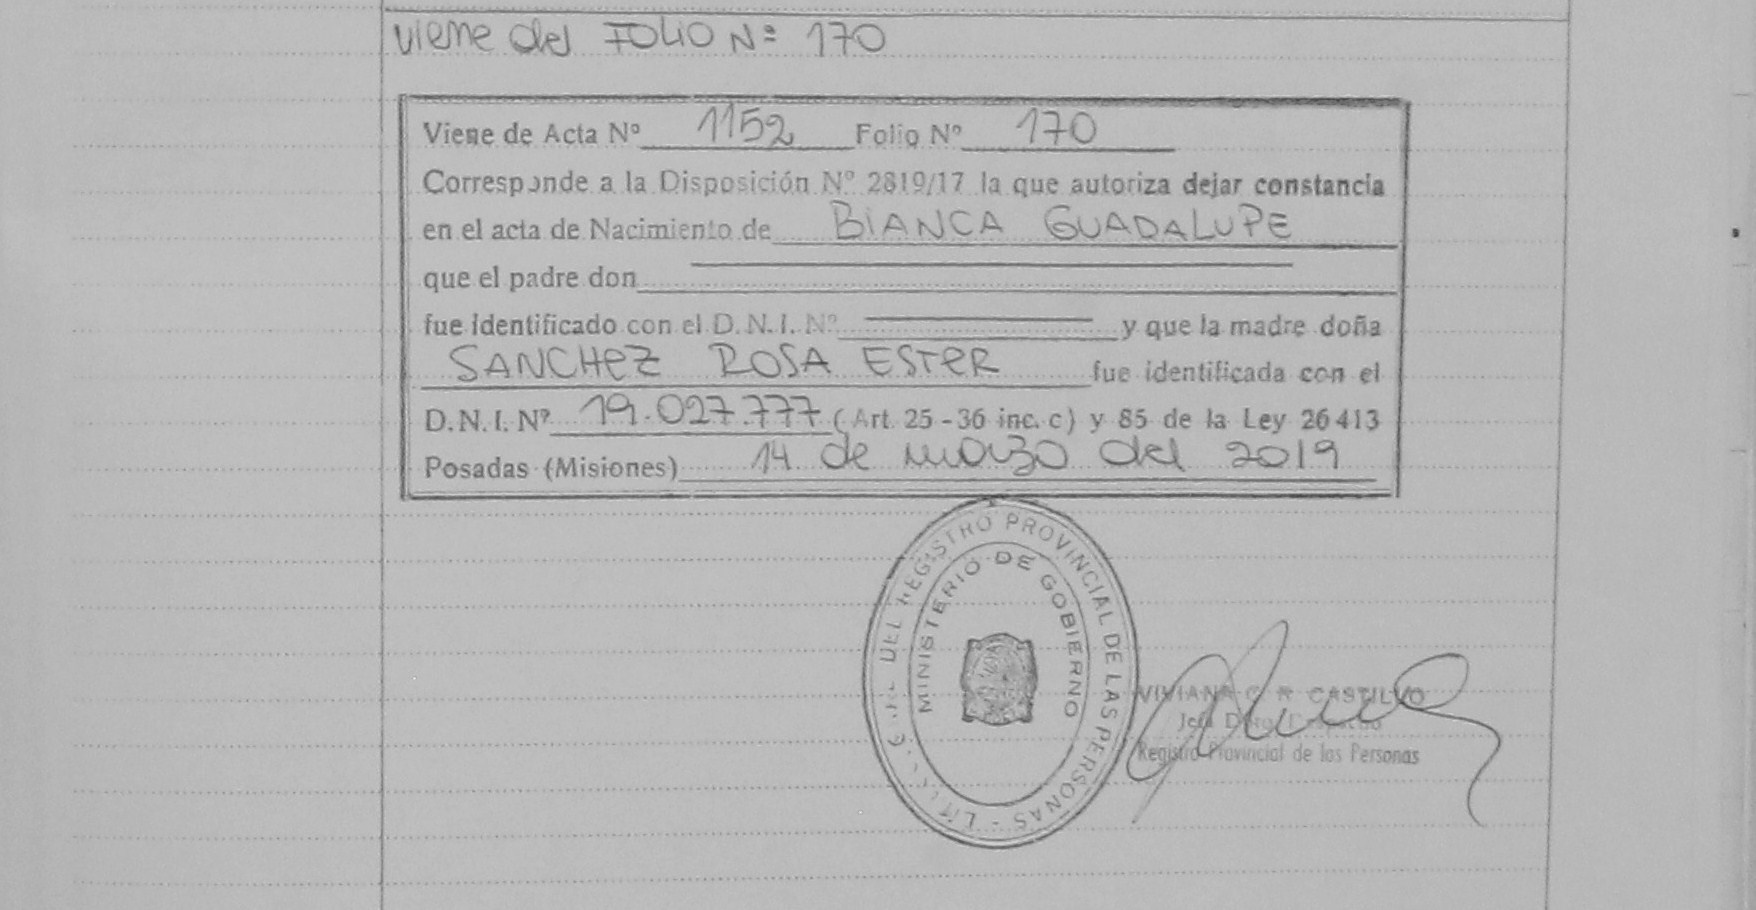 viene del FOLIO Nº 170
Viene de Acta Nº 1152 Folio Nº 170
Corresponde a la Disposición Nº 2819/17 la que autoriza dejar constancia
en el acta de Nacimiento de BIANCA GUADALUPE
que el padre don
fue identificado con el D.N.I. Nº y que la madre doña
SANCHEZ ROSA ESTER fue identificada con el
D.N.I. Nº 19.027.777 (Art. 25 - 36 inc. c) y 85 de la Ley 26413
Posadas (Misiones) 14 de marzo del 2019
DEL REGISTRO PROVINCIAL DE LAS PERSONAS
MINISTERIO DE GOBIERNO
VIVIANA CASTILLO
Registro Provincial de las Personas